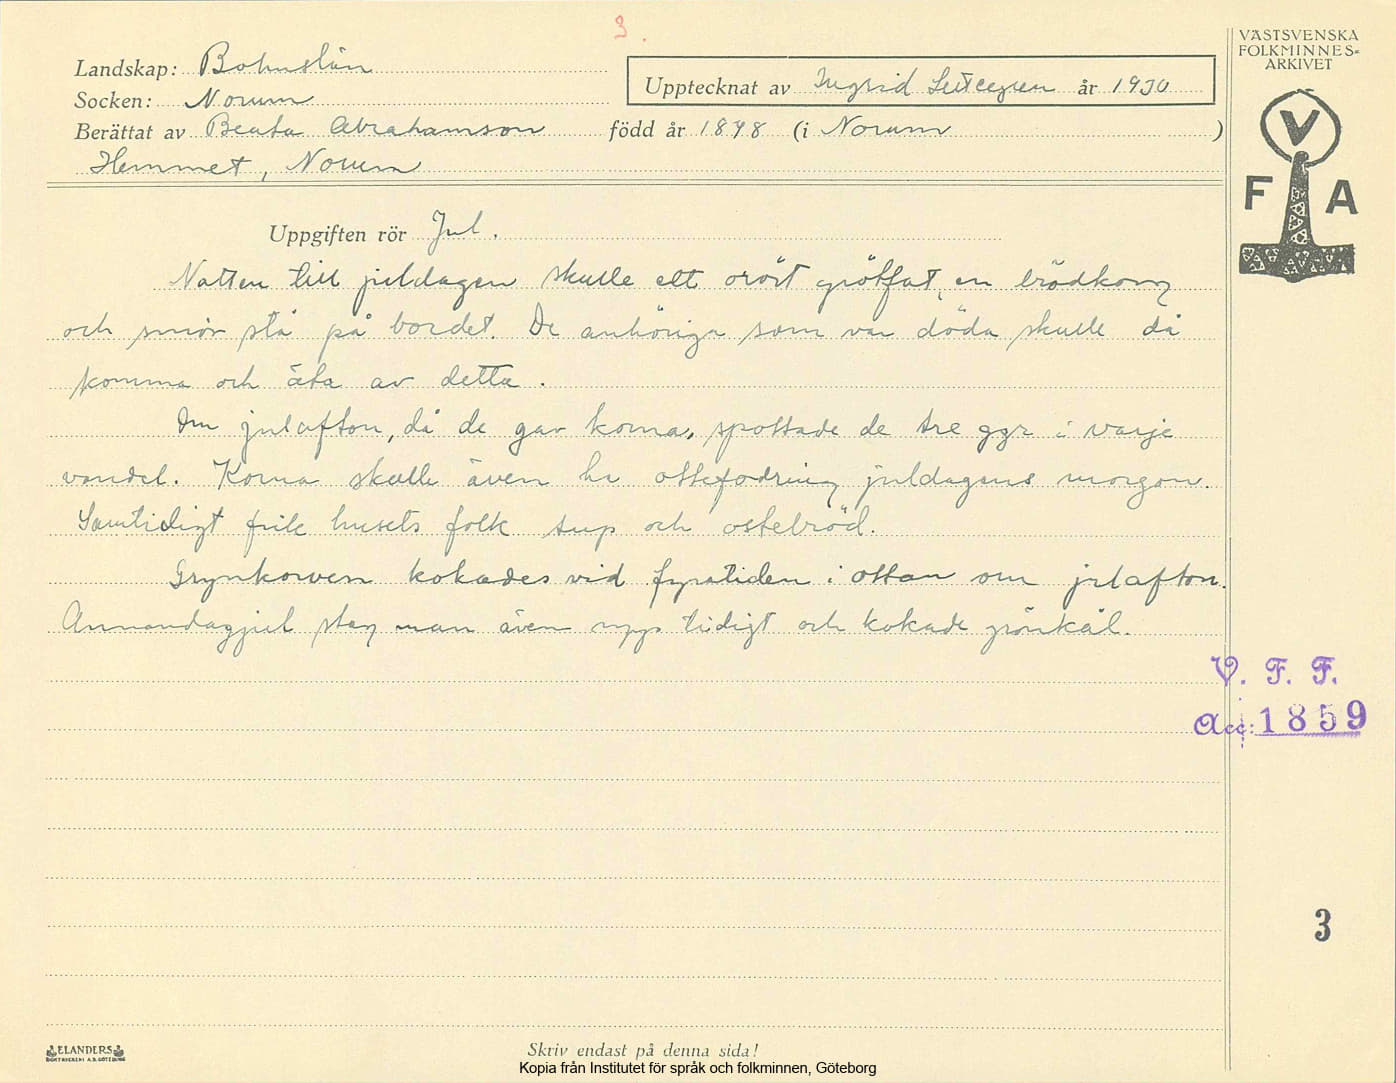 3.
VÄSTSVENSKA
FOLKMINNES-
ARKIVET
V
F A
Landskap: Bohuslän
Upptecknat av Ingrid år 1930
Socken: Norum
Berättat av Beata Abrahamson född år 1848 (i Norum )
Hemmet, Norum
Uppgiften rör Jul.
Natten till juldagen skulle ett orört grötfat, en brödkorg
och smör stå på bordet. De anhöriga som var döda skulle då
komma och äta av detta.
Om julafton, då de gav korna, spottade de tre ggr i varje
vandel. Korna skulle även ha ottefodring juldagens morgon.
Samtidigt fick husets folk sup och ostebröd.
Grynkorven kokades vid fyratiden i ottan om julafton.
Annandagjul steg man även upp tidigt och kokade grönkål.
V. F. F.
Acc: 1859
3
ELANDERS
BOKTRYCKERI A.B. GÖTEBORG
Skriv endast på denna sida!
Kopia från Institutet för språk och folkminnen, Göteborg